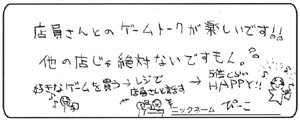 店員さんとのゲームトークが楽しいです!!
他の店じゃ絶対ないですもん。
好きなゲームを買う→レジで店員さんと話す→5倍くらいHAPPY!!
ニックネーム ぴーこ